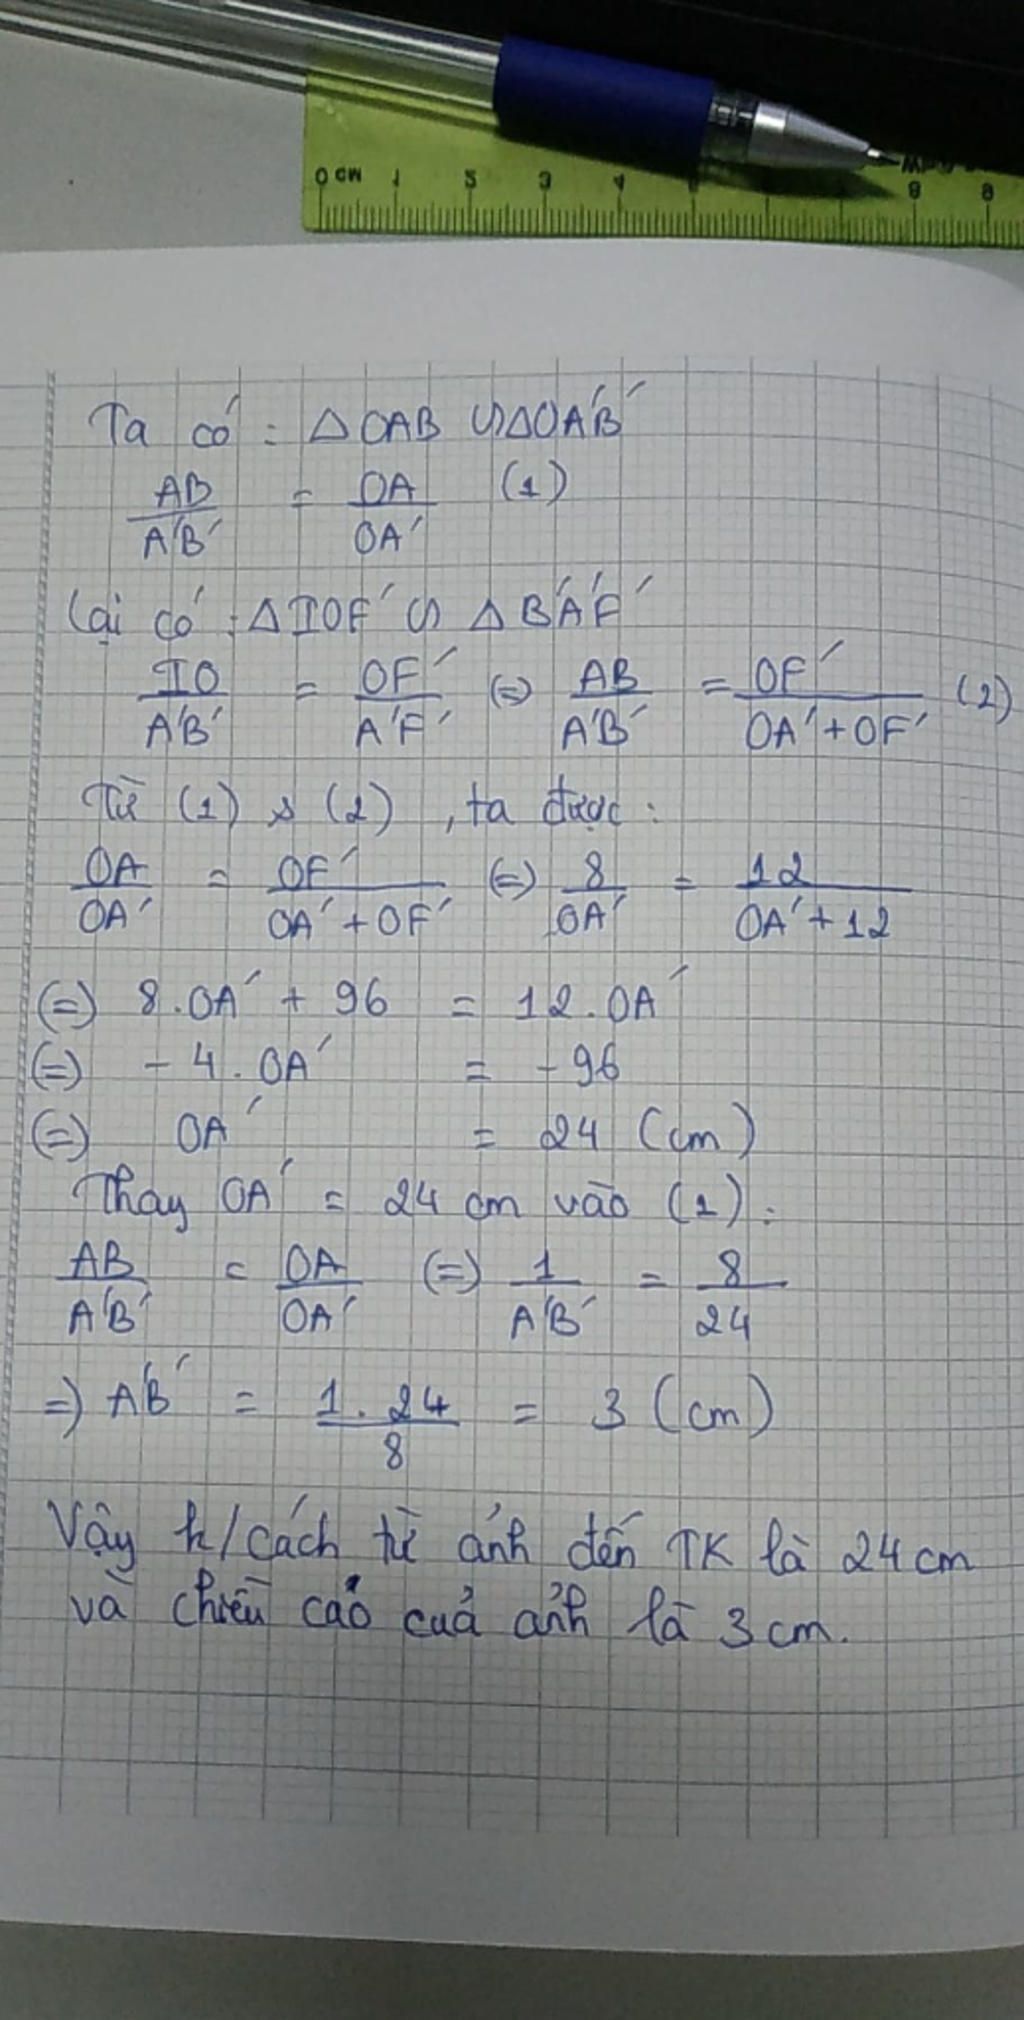 0 cm 1 2 3 4 8 9
Ta có : △OAB ∽ △OA'B'
AB/A'B' = OA/OA' (1)
Lại có : △IOF' ∽ △B'A'F'
IO/A'B' = OF'/A'F' (=) AB/A'B' = OF'/OA'+OF' (2)
Từ (1) & (2) , ta được :
OA/OA' = OF'/OA'+OF' (=) 8/OA' = 12/OA'+12
(=) 8.OA' + 96 = 12.OA'
(=) -4.OA' = -96
(=) OA' = 24 (cm)
Thay OA' = 24 cm vào (1) :
AB/A'B' = OA/OA' (=) 1/A'B' = 8/24
=) A'B' = 1.24/8 = 3 (cm)
Vậy k/cách từ ảnh đến TK là 24cm
và chiều cao của ảnh là 3cm.